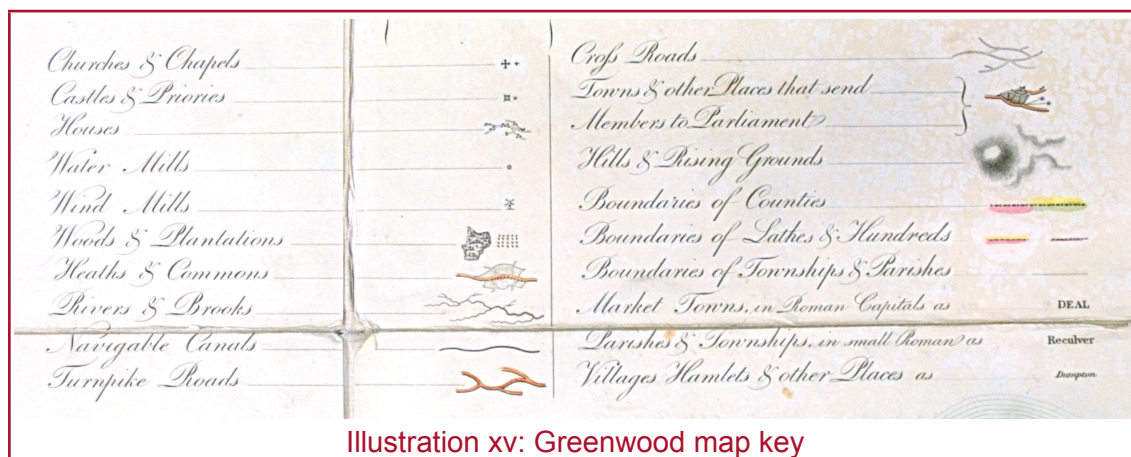 Churches & Chapels
Castles & Priories
Houses
Water Mills
Wind Mills
Woods & Plantations
Heaths & Commons
Rivers & Brooks
Navigable Canals
Turnpike Roads
Croſs Roads
Towns & other Places that send
Members to Parliament
Hills & Rising Grounds
Boundaries of Counties
Boundaries of Lathes & Hundreds
Boundaries of Townships & Parishes
Market Towns, in Roman Capitals as DEAL
Parishes & Townships, in small Roman as Reculver
Villages Hamlets & other Places as Dumpton
Illustration xv: Greenwood map key